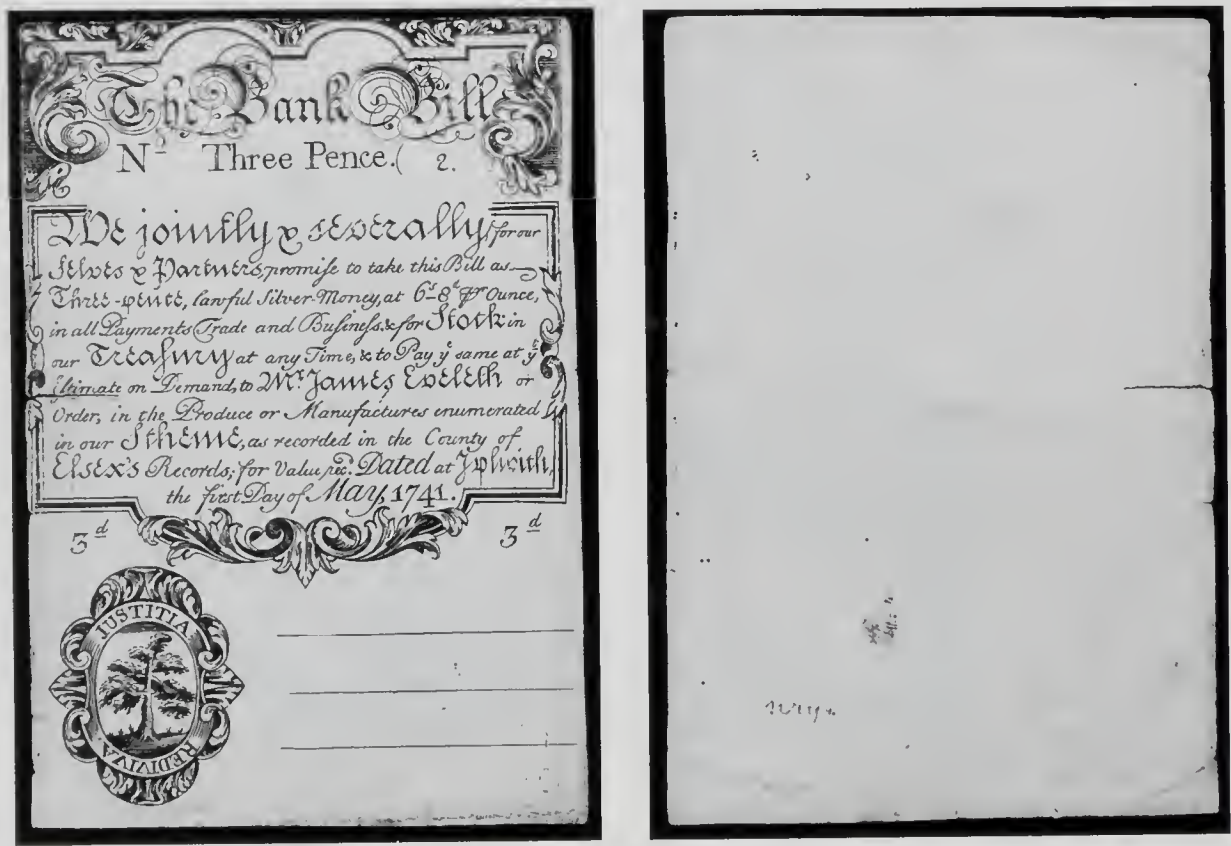 The Bank Bill
Nº Three Pence.( 2.
We jointly & severally, for our
selves & Partners, promise to take this Bill as
Three-pence, lawful Silver-Money, at 6s 8d pr Ounce,
in all Payments Trade and Business & for Stock in
our Treasury at any Time, & to Pay ye same at ye
Estimate on Demand, to Mr James Eveleth or
Order, in the Produce or Manufactures enumerated
in our Scheme, as recorded in the County of
Essex's Records; for Value recd. Dated at Ipswich,
the first Day of May, 1741.
3d 3d
JUSTITIA
REDIVIVA.